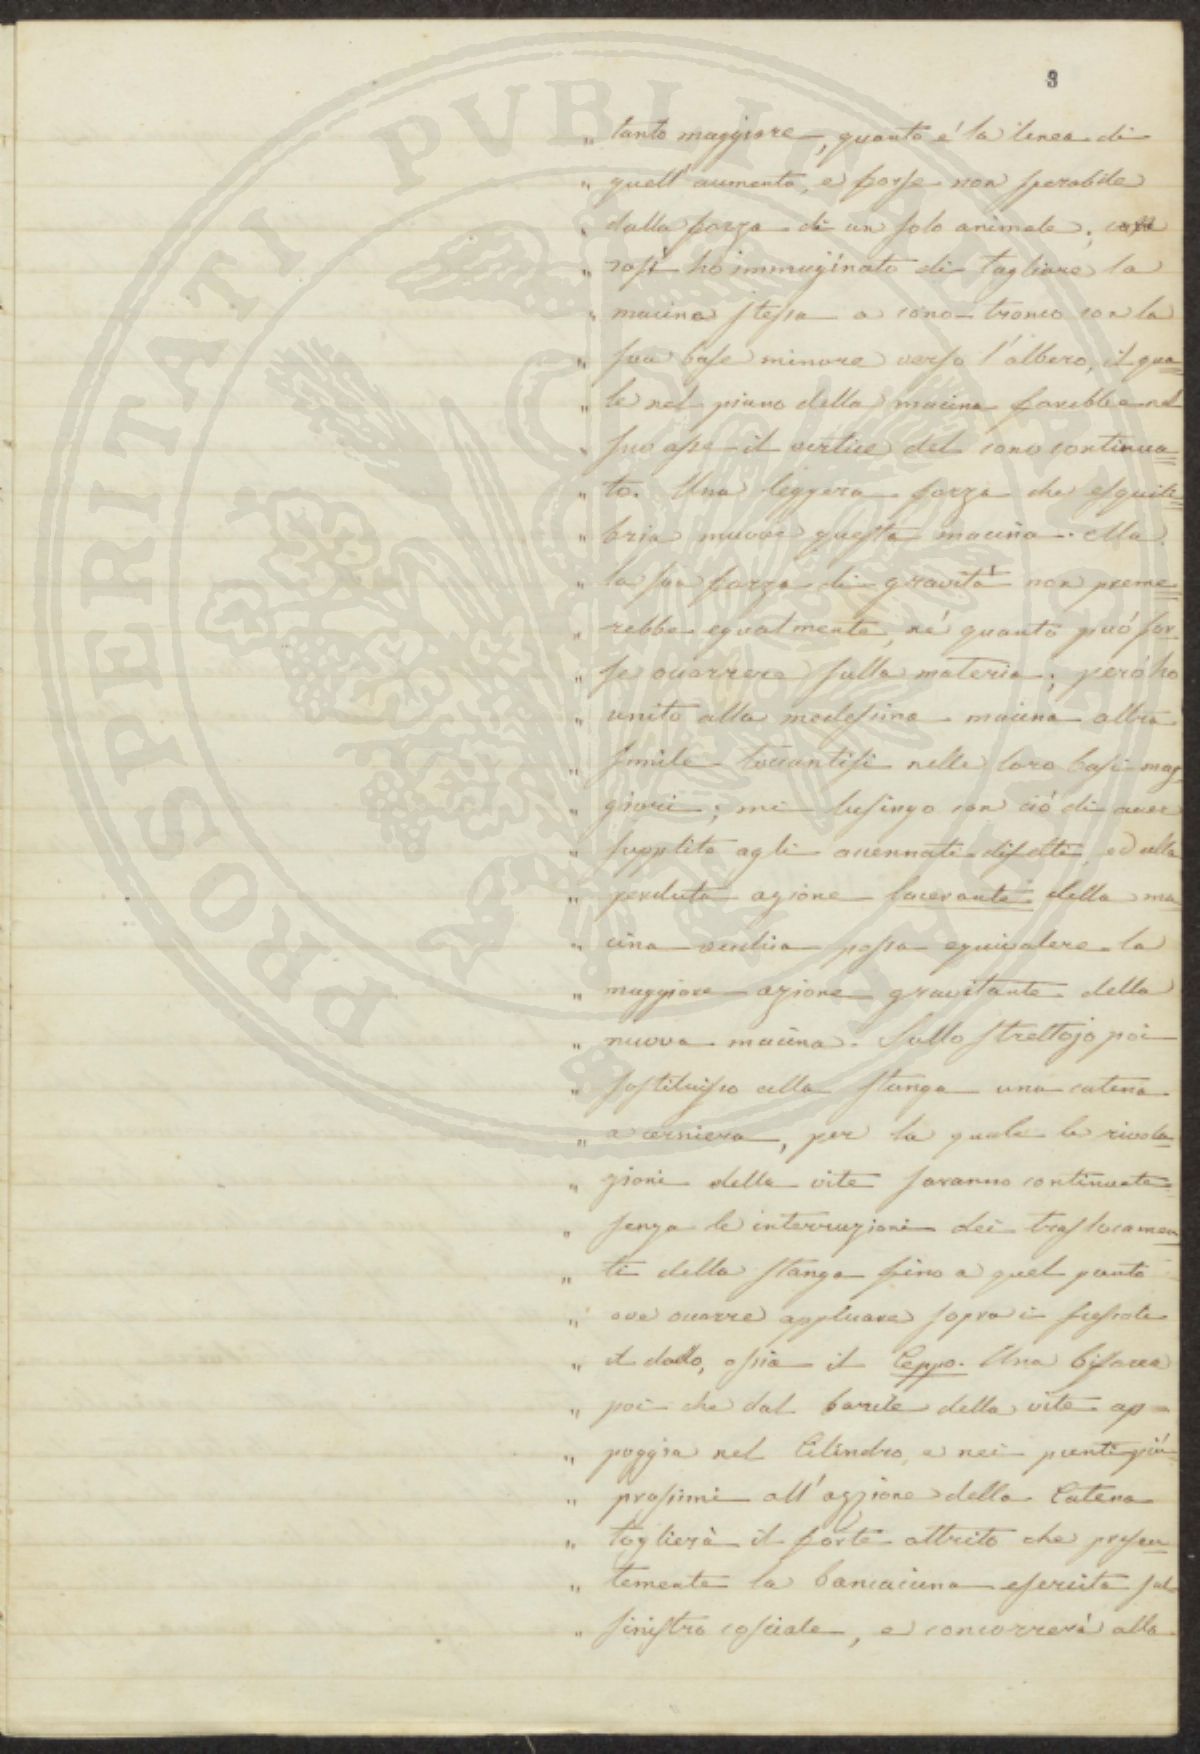 3
„ tanto maggiore, quanto é la linea di
„ quell' aumento, e forse non sperabile
„ dalla forza di un solo animale;
„ cosi ho immaginato di tagliare la
„ macina stessa a cono-tronco con la
„ sua base minore verso l'albero, il qua=
„ le nel piano della macina farebbe nel
„ suo asse il vertice del cono continua=
„ to. Una leggera forza che esquili=
„ bria muove questa macina. Ma
„ la sua forza di gravità non preme=
„ rebbe egualmente, né quanto può for=
„ se occorrere sulla materia; però ho
„ unito alla medesima macina altra
„ simile toccantisi nelle loro basi mag=
„ giori; mi lusingo con ciò di aver
„ supplito agli accennati difetti, ed alla
„ perduta azione lacerante della ma=
„ cina vecchia possa equivalere la
„ maggiore azione gravitante della
„ nuova macina. Sullo strettojo poi
„ sostituisco alla stanga una catena
„ a cerniera, per la quale le rivolu=
„ zioni della vite saranno continuate
„ senza le interruzioni dei traslocamen=
„ ti della stanga fino a quel punto
„ ove occorre applicare sopra i fiscoli
„ il dado, ossia il Ceppo. Una
„ poi che dal barile della vite ap=
„ poggia nel Cilindro, e nei punti più
„ prossimi all'azzione della Catena
„ toglierà il forte attrito che presen=
„ temente la esercita sul
„ sinistro cosciale, e concorrerà alla
PROSPERITATI PVBLICAE